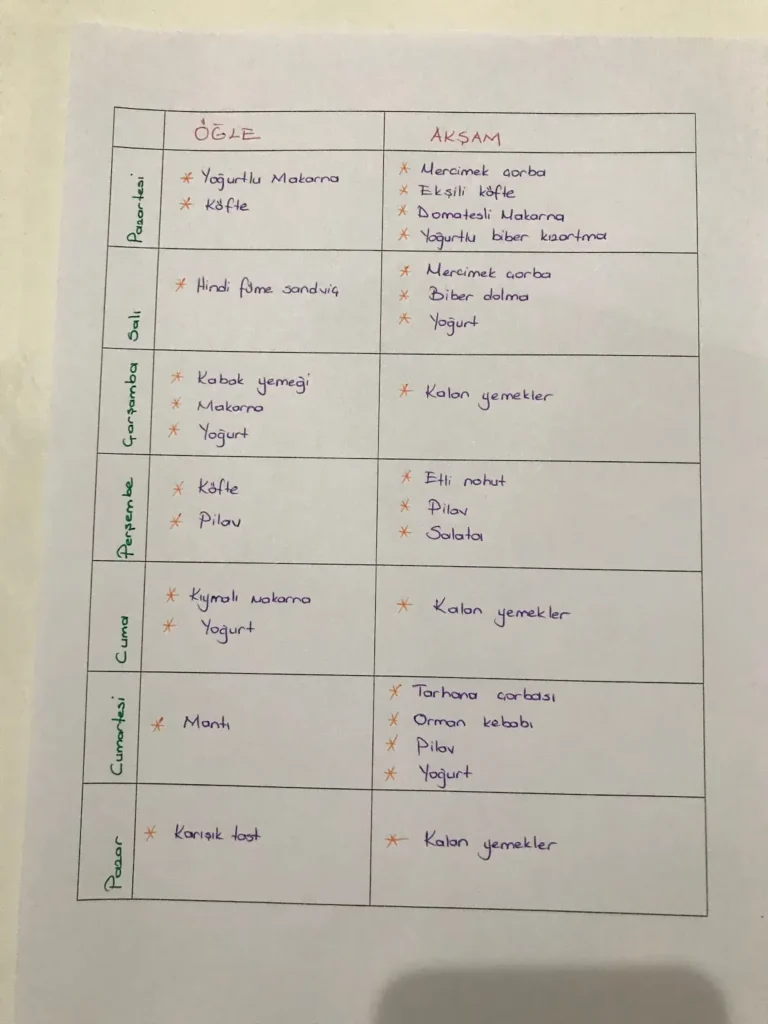 ÖĞLE
AKŞAM
Pazartesi
* Yoğurtlu Makarna
* Köfte
* Mercimek çorba
* Ekşili köfte
* Domatesli Makarna
* Yoğurtlu biber kızartma
Salı
* Hindi füme sandviç
* Mercimek çorba
* Biber dolma
* Yoğurt
Çarşamba
* Kabak yemeği
* Makarna
* Yoğurt
* Kalan yemekler
Perşembe
* Köfte
* Pilav
* Etli nohut
* Pilav
* Salata
Cuma
* Kıymalı Makarna
* Yoğurt
* Kalan yemekler
Cumartesi
* Mantı
* Tarhana çorbası
* Orman kebabı
* Pilav
* Yoğurt
Pazar
* Karışık tost
* Kalan yemekler